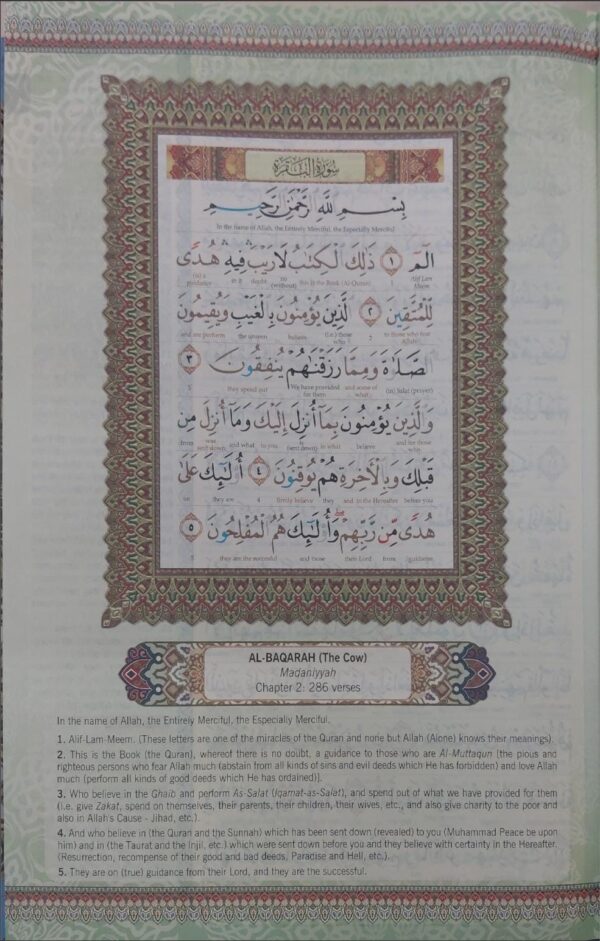 سُورَةُ الْبَقَرَةِ
بِسْمِ اللَّهِ الرَّحْمَٰنِ الرَّحِيمِ
In the name of Allah, the Entirely Merciful, the Especially Merciful
الٓمٓ ١ ذَٰلِكَ الْكِتَٰبُ لَا رَيْبَ ۛ فِيهِ ۛ هُدًى
Alif Lam Meem 1 this is the Book (Al-Quran) no (without) doubt in it (is) a guidance
لِّلْمُتَّقِينَ ٢ الَّذِينَ يُؤْمِنُونَ بِالْغَيْبِ وَيُقِيمُونَ
to those who fear Allah 2 (i.e.) those who believe the unseen and are perform
الصَّلَاةَ وَمِمَّا رَزَقْنَٰهُمْ يُنفِقُونَ ٣
(in) Salat (prayer) and some of what We have provided for them they spend out
وَالَّذِينَ يُؤْمِنُونَ بِمَا أُنزِلَ إِلَيْكَ وَمَا أُنزِلَ مِن
and for those who believe in what is (sent down) to you and what was sent down from
قَبْلِكَ وَبِالْآخِرَةِ هُمْ يُوقِنُونَ ٤ أُولَٰئِكَ عَلَىٰ
before you and in the Hereafter they firmly believe 4 they are on
هُدًى مِّن رَّبِّهِمْ ۖ وَأُولَٰئِكَ هُمُ الْمُفْلِحُونَ ٥
guidance from their Lord and those they are the successful 5
AL-BAQARAH (The Cow)
Madaniyyah
Chapter 2: 286 verses
In the name of Allah, the Entirely Merciful, the Especially Merciful.
1. Alif-Lam-Meem. [These letters are one of the miracles of the Quran and none but Allah (Alone) knows their meanings).
2. This is the Book (the Quran), whereof there is no doubt, a guidance to those who are Al-Muttaqun [the pious and
righteous persons who fear Allah much (abstain from all kinds of sins and evil deeds which He has forbidden) and love Allah
much (perform all kinds of good deeds which He has ordained)].
3. Who believe in the Ghaib and perform As-Salat (Iqamat-as-Salat), and spend out of what we have provided for them
(i.e. give Zakat, spend on themselves, their parents, their children, their wives, etc., and also give charity to the poor and
also in Allah's Cause - Jihad, etc.).
4. And who believe in (the Quran and the Sunnah) which has been sent down (revealed) to you (Muhammad Peace be upon
him) and in (the Taurat and the Injil, etc.) which were sent down before you and they believe with certainty in the Hereafter.
(Resurrection, recompense of their good and bad deeds, Paradise and Hell, etc.).
5. They are on (true) guidance from their Lord, and they are the successful.